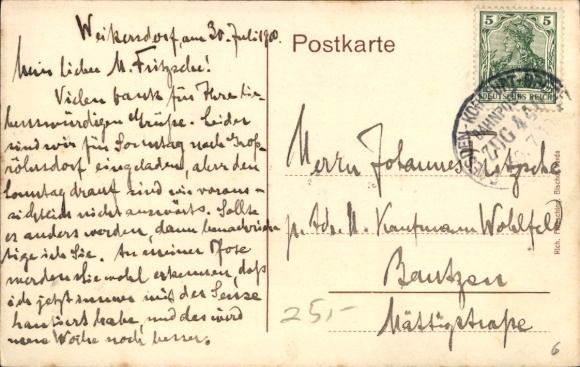 Weikersdorf, am 30. Juli 1908.
Mein lieber M. Fritzsche!
Vielen Dank für Ihre lie-
benswürdigen Grüße. Leider
sind wir für Sonntag nach Groß-
röhrsdorf eingeladen, aber den
Sonntag drauf sind wir voraus-
sichtlich nicht auswärts. Sollte
es anders werden, dann benachrich-
tige ich Sie. An meiner Pfote
werden Sie wohl erkennen, daß
ich jetzt immer mit der Sense
hantiert habe, und das wird
neue Woche noch besser.
Postkarte
5 5
DEUTSCHES REICH
BAHNPOST
ZUG 44
Herrn Johannes Fritzsche
p. Adr. H. Kaufmann Wohlfeld
Bautzen
Mättigstraße
25,-
Rich.
6